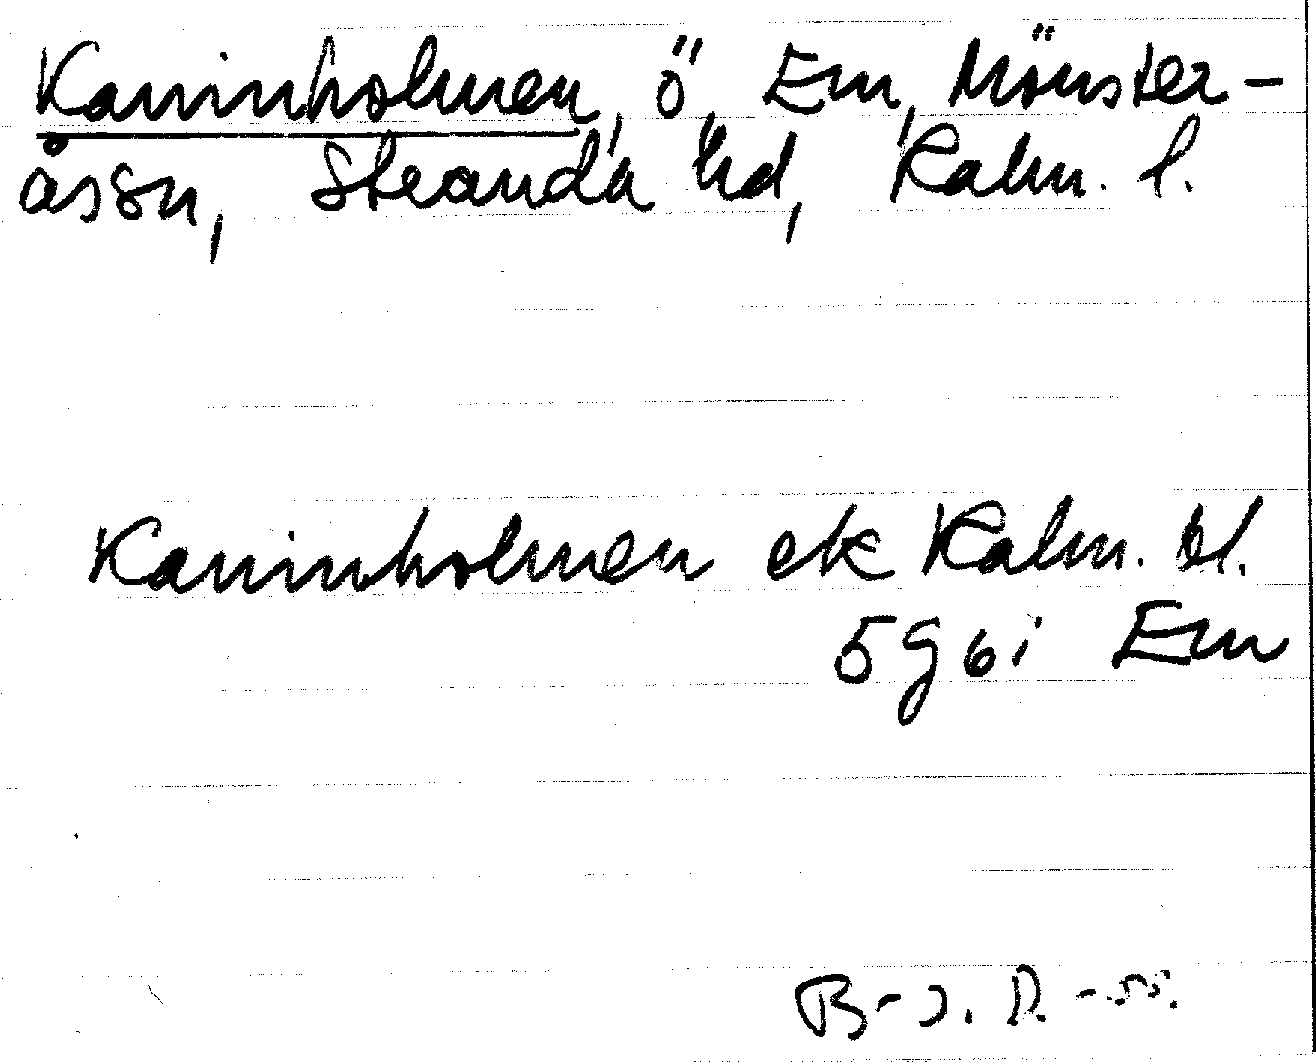 Kaninholmen, ö, Em, Mönster-
åssn, Stranda hd, Kalm. l.
Kaninholmen ek Kalm. bl.
5g6i Em
B-J. D. -55.